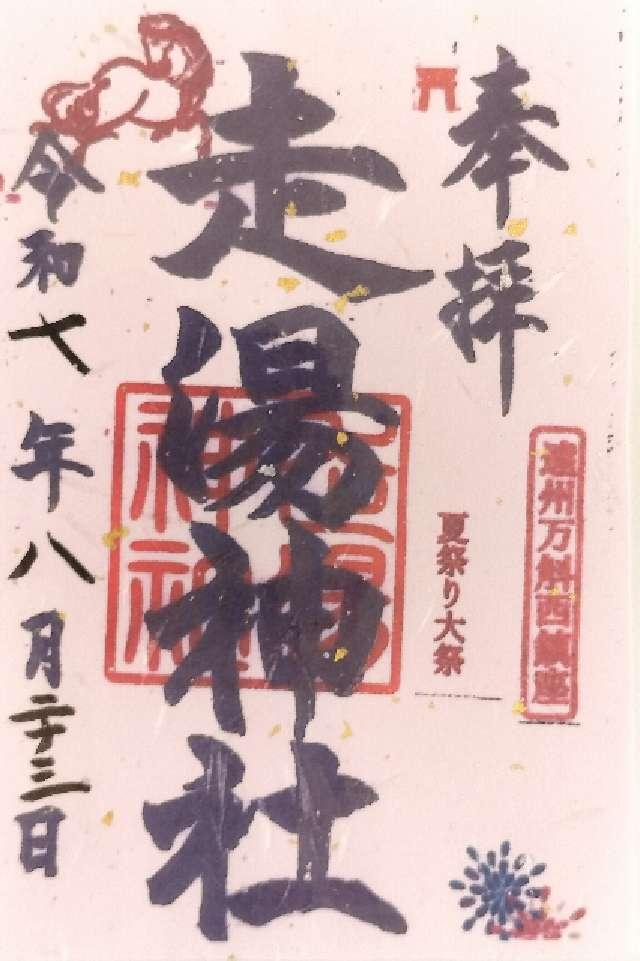 奉拝
遠州万斛西鎮座
夏祭り大祭
走湯神社
令和七年八月二十三日